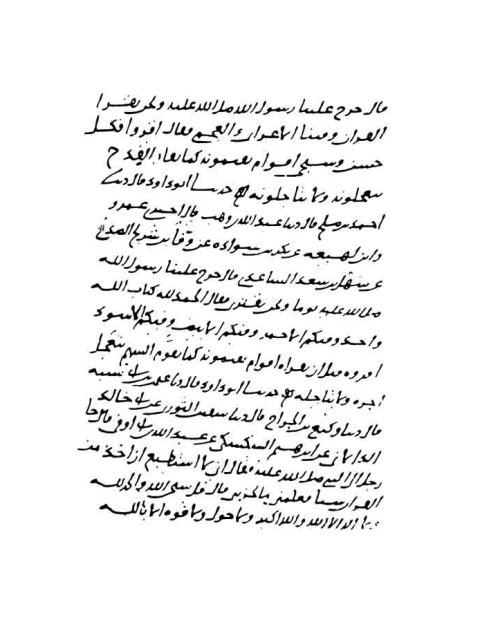 قال خرج علينا رسول الله صلى الله عليه ونحن نقرا
القران وفينا الاعرابي والعجمي فقال اقروا فكل
حسن وسيجي اقوام يقيمونه كما يقام القدح
يتعجلونه ولا يتاجلونه حدثنا ابو داود قال حدثنا
احمد بن صالح قال حدثنا عبد الله بن وهب قال اخبرني عمرو
وابن لهيعه عن بكر بن سواده عن وفا بن شريح الصدفي
عن سهل بن سعد الساعدي قال خرج علينا رسول الله
صلى الله عليه يوما ونحن نقتري فقال الحمد لله كتاب الله
واحد وفيكم الاحمر وفيكم الابيض وفيكم الاسود
اقروه قبل ان يقراه اقوام يقيمونه كما يقوم السهم يتعجل
اجره ولا يتاجله حدثنا ابو داود قال حدثنا عثمن بن ابي شيبه
قال حدثنا وكيع بن الجراح قال حدثنا سفين الثوري عن ابي خالد
الدالاني عن ابرهيم السكسكي عن عبد الله بن ابي اوفى قال جا
رجل الى النبي صلى الله عليه فقال اني لا استطيع ان اخذ من
القران شيا فعلمني ما يجزيني قال قل سبحن الله والحمد لله
ولا اله الا الله والله اكبر ولا حول ولا قوه الا بالله